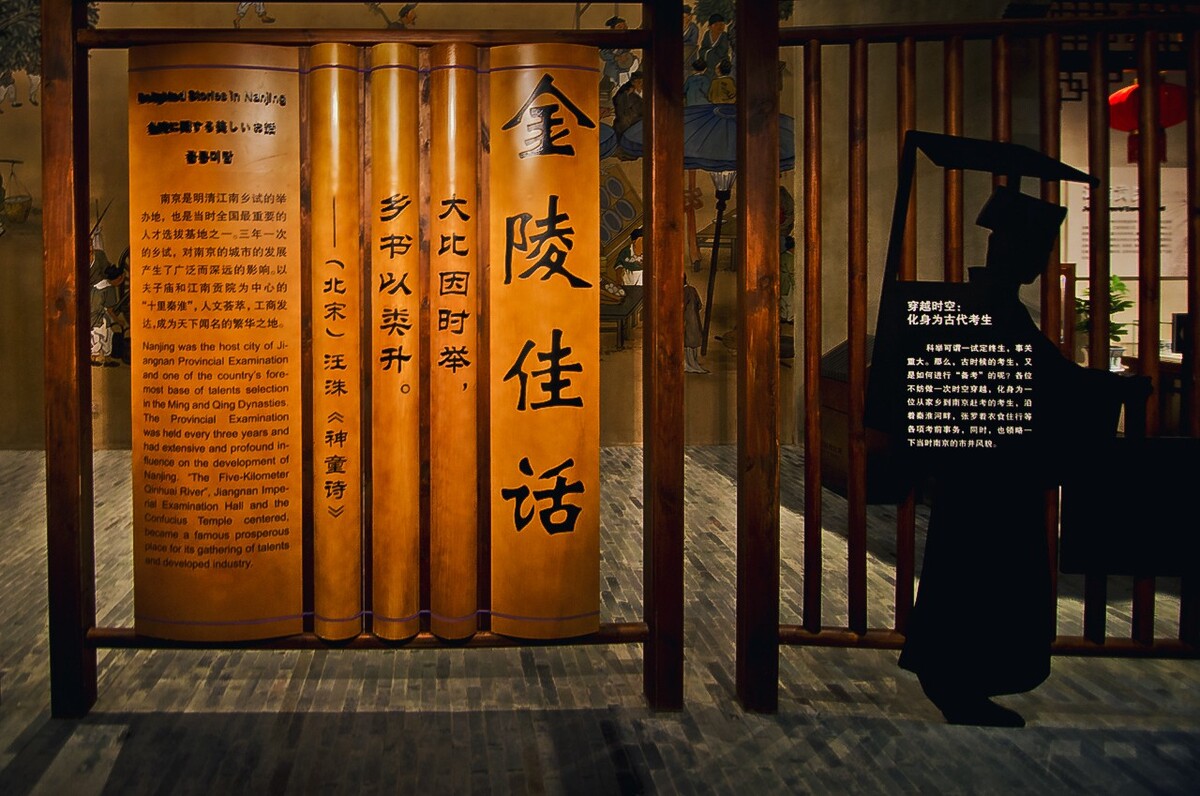 Delighted Stories in Nanjing
金陵に関する美しいお話
금릉미담
南京是明清江南乡试的举
办地，也是当时全国最重要的
人才选拔基地之一。三年一次
的乡试，对南京的城市的发展
产生了广泛而深远的影响。以
夫子庙和江南贡院为中心的
“十里秦淮”，人文荟萃，工商发
达，成为天下闻名的繁华之地。
Nanjing was the host city of Ji-
angnan Provincial Examination
and one of the country's fore-
most base of talents selection
in the Ming and Qing Dynasties.
The Provincial Examination
was held every three years and
had extensive and profound in-
fluence on the development of
Nanjing. “The Five-Kilometer
Qinhuai River”, Jiangnan Impe-
rial Examination Hall and the
Confucius Temple centered,
became a famous prosperous
place for its gathering of talents
and developed industry.
金陵佳话
大比因时举，
乡书以类升。
——（北宋）汪洙《神童诗》
穿越时空：
化身为古代考生
科举可谓一试定终生，事关
重大。那么，古时候的考生，又
是如何进行“备考”的呢？各位
不妨做一次时空穿越，化身为一
位从家乡到南京赶考的考生，沿
着秦淮河畔，张罗着衣食住行等
各项考前事务，同时，也领略一
下当时南京的市井风貌。